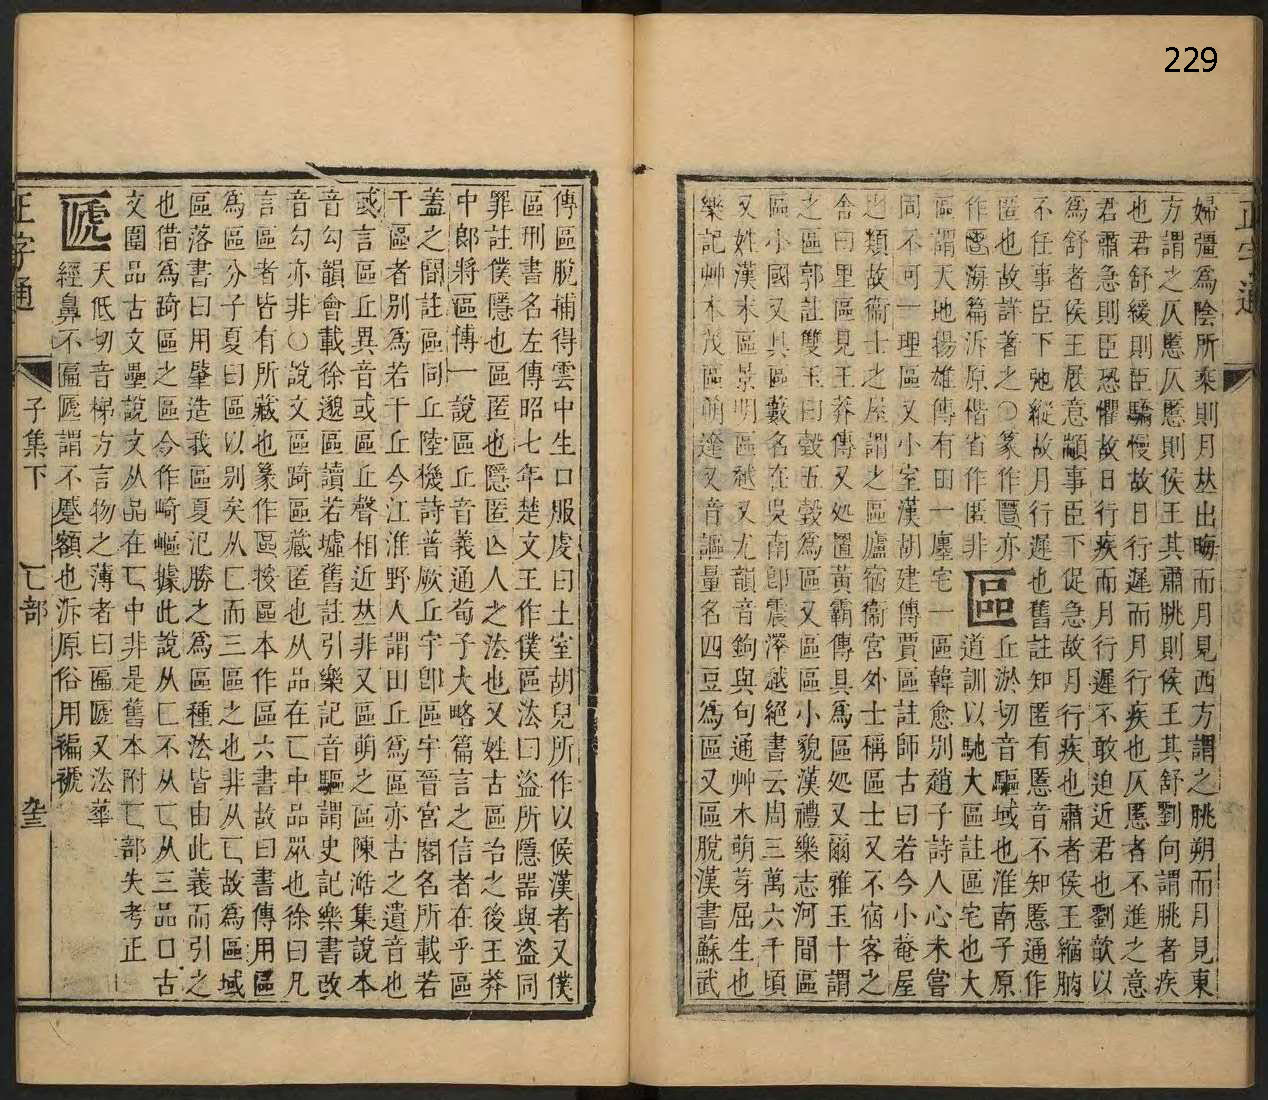 229
正字通
婦彊爲陰所乘則月𠀤出晦而月見西方謂之朓朔而月見東
方謂之仄慝仄慝則侯王其肅朓則侯王其舒劉向謂朓者疾
也君舒緩則臣驕慢故日行遲而月行疾也仄慝者不進之意
君肅急則臣恐懼故日行疾而月行遲不敢迫近君也劉歆以
爲舒者侯王展意顓事臣下促急故月行疾也肅者侯王縮朒
不任事臣下弛縱故月行遲也舊註知匿有慝音不知慝通作
匿也故詳著之〇篆作匿亦
作海篇泝原偕省作匿非
區
丘淤切音驅域也淮南子原
道訓以馳大區註區宅也大
區謂天地揚雄傳有田一廛宅一區韓愈别趙子詩人心未嘗
同不可一理區又小室漢胡建傳賈區註師古曰若今小菴屋
之類故衞士之屋謂之區廬宿衞宮外士稱區士又不宿客之
舍曰里區見王莽傳又処置黃霸傳具爲區処又爾雅玉十謂
之區郭註雙玉曰瑴五瑴爲區又區區小貌漢禮樂志河間區
區小國又具區藪名在吳南郎震澤越絕書云周三萬六千頃
又姓漢末區景明區越又尤韻音鉤與句通艸木萌芽屈生也
樂記艸木茂區萌達又音謳量名四豆爲區又區脫漢書蘇武
傳區脫補得雲中生口服虔曰土室胡兒所作以候漢者又僕
區刑書名左傳昭七年楚文王作僕區法曰盜所隱器與盜同
罪註僕隱也區匿也隱匿亾人之法也又姓古區冶之後王莽
中郎將區博一說區丘音義通荀子大略篇言之信者在乎區
蓋之閒註區同丘陸機詩普厥丘宇卽區宇晉宮閣名所載若
干區者别爲若干丘今江淮野人謂田丘爲區亦古之遺音也
或言區丘異音或區丘聲相近𠀤非又區萌之區陳澔集說本
音勾韻會載徐邈區讀若墟舊註引樂記音驅謂史記樂書改
音勾亦非〇說文區踦區藏匿也从品在匸中品眾也徐曰凡
言區者皆有所藏也篆作區按區本作區六書故曰書傳用區
爲區分子夏曰區以别矣从匚而三區之也非从匸故爲區域
區落書曰用肇造我區夏氾勝之爲區種法皆由此義而引之
也借爲踦區之區今作崎嶇據此說从匚不从匸从三品口古
文圍品古文壘說文从品在匸中非是舊本附匸部失考正
𠥶
天低切音梯方言物之薄者曰匾𠥶又法華
經鼻不匾𠥶謂不蹙額也泝原俗用褊㔸
正字通
子集下
匸部